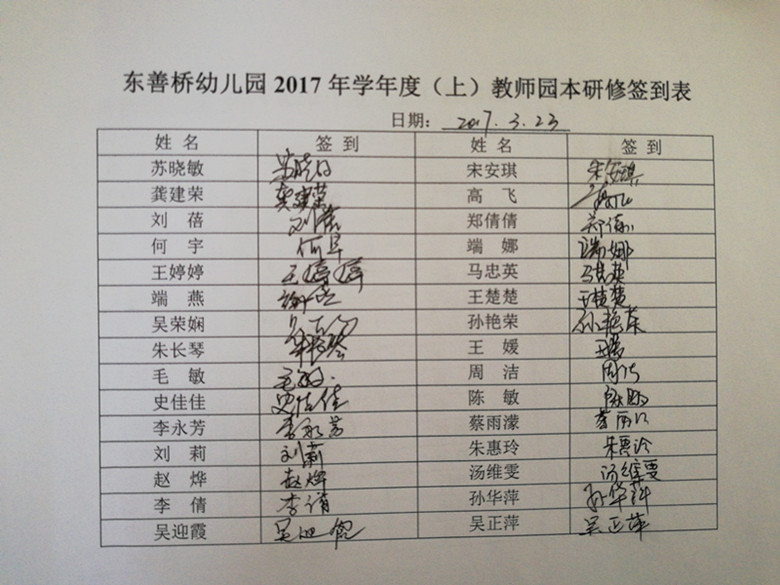 东善桥幼儿园2017年学年度（上）教师园本研修签到表
日期：2017.3.23
姓名 签到 姓名 签到
苏晓敏 苏晓敏 宋安琪 宋安琪
龚建荣 龚建荣 高飞 高飞
刘蓓 刘蓓 郑倩倩 郑倩
何宇 何宇 端娜 端娜
王婷婷 王婷婷 马忠英 马忠英
端燕 端燕 王楚楚 王楚楚
吴荣娴 孙艳荣 孙艳荣
朱长琴 朱长琴 王媛 王媛
毛敏 毛敏 周洁 周洁
史佳佳 史佳佳 陈敏 陈敏
李永芳 李永芳 蔡雨濛
刘莉 刘莉 朱惠玲 朱惠玲
赵烨 赵烨 汤维雯 汤维雯
李倩 李倩 孙华萍 孙华萍
吴迎霞 吴迎霞 吴正萍 吴正萍